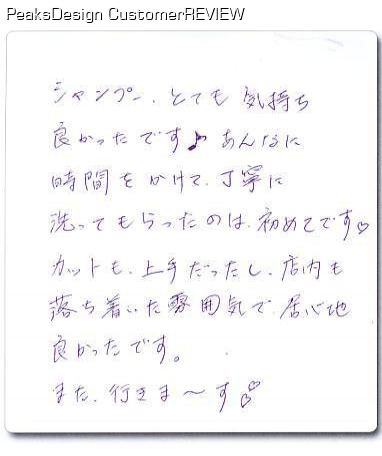 PeaksDesign CustomerREVIEW
シャンプー、とても気持ち
良かったです♪あんなに
時間をかけて、丁寧に
洗ってもらったのは、初めてです♡
カットも、上手だったし、店内も
落ち着いた雰囲気で、居心地
良かったです。
また、行きま〜す♡♡